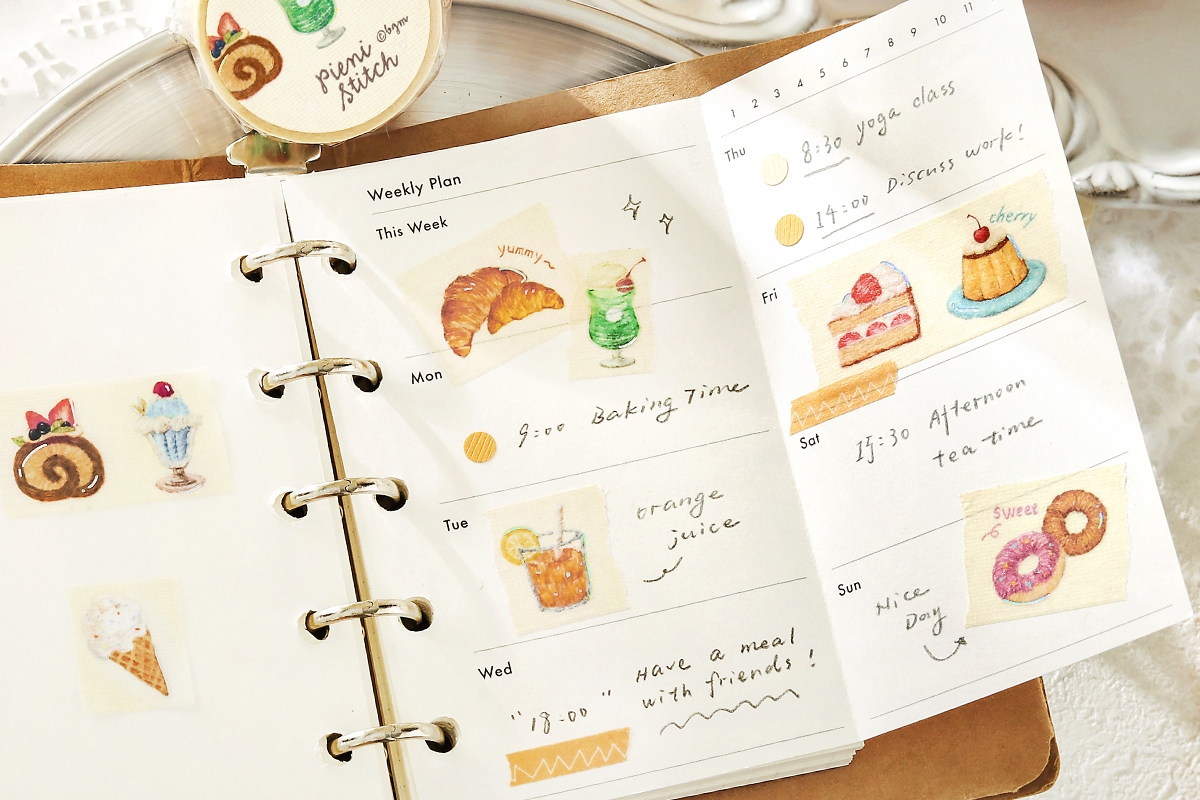 pieni
Stitch
©bgm
Weekly Plan
This Week
yummy~
Mon
9:00 Baking Time
Tue
orange
juice
Wed
"18:00"
Have a meal
with friends!
1 2 3 4 5 6 7 8 9 10 11
Thu
8:30 yoga class
14:00 Discuss work!
Fri
cherry
Sat
15:30 Afternoon
tea time
Sweet
Sun
Nice
Day